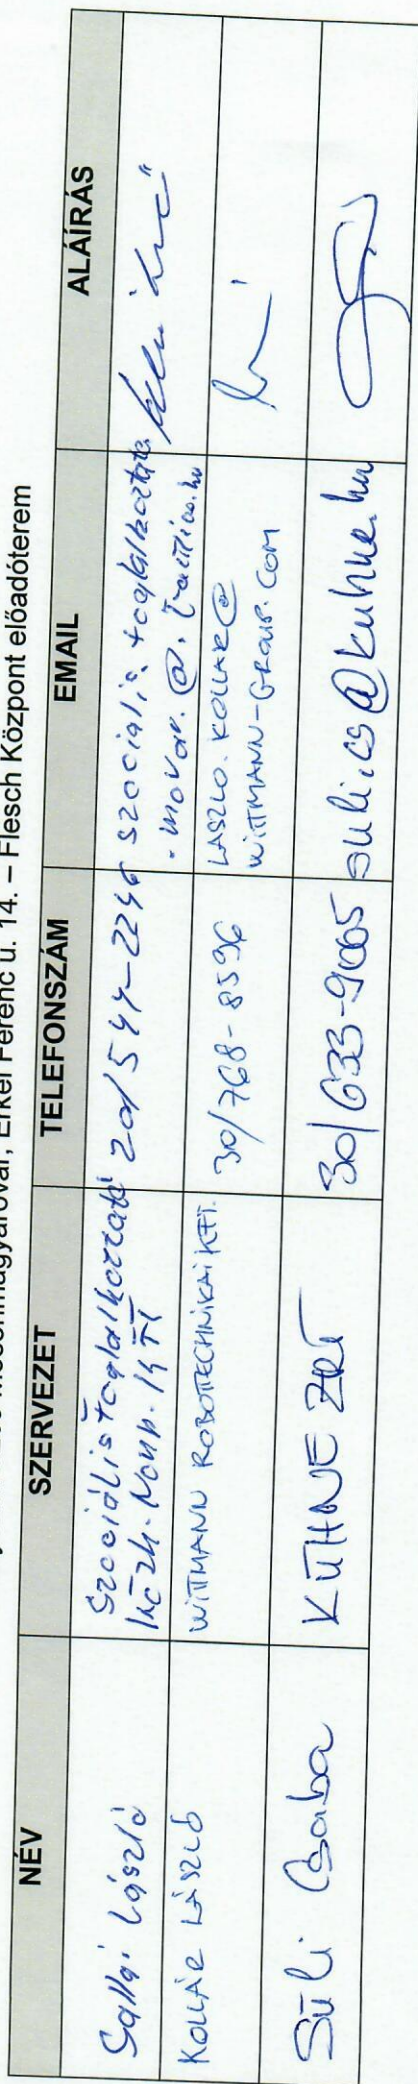 Mosonmagyaróvár, Erkel Ferenc u. 14. – Flesch Központ előadóterem
NÉV SZERVEZET TELEFONSZÁM EMAIL ALÁÍRÁS
Gallai László Szociális Foglalkoztató 20/544-2246 szocialis.foglalkoztato
Közh. Nonp. Kft .movar.@.
KOLLÁR LÁSZLÓ WITTMANN ROBOTTECHNIKAI KFT. 30/768-8596 LASZLO.KOLLAR@
WITTMANN-GROUP.COM
Süli Csaba KÜHNE ZRT 30/633-9065 suli.cs@kuhne.hu